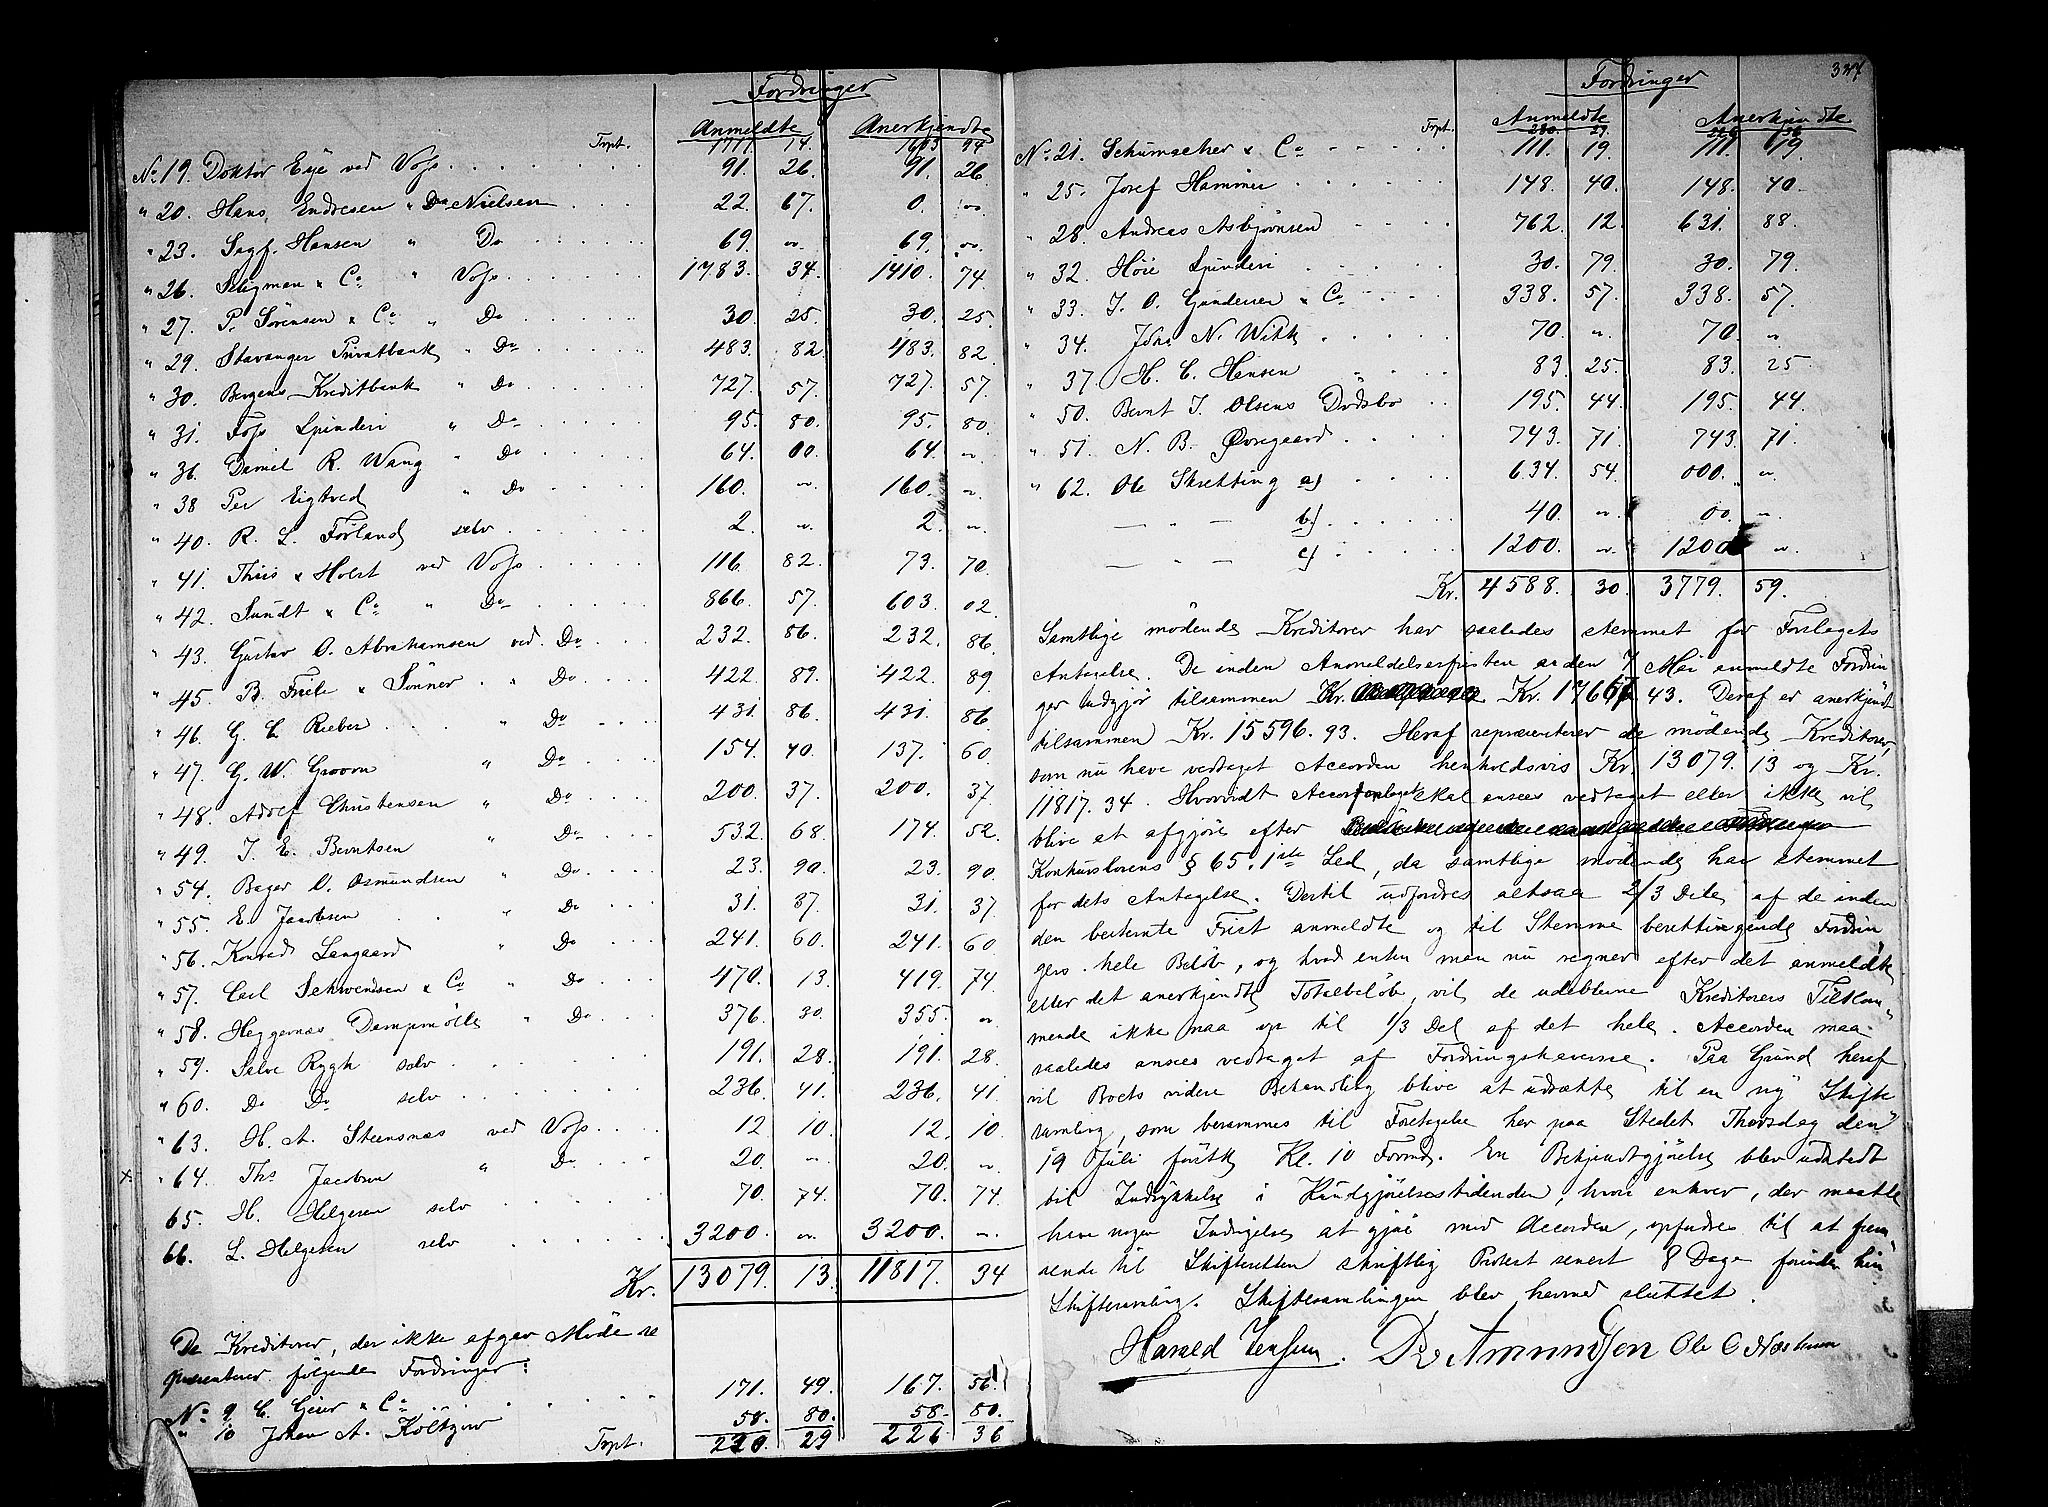 Fordringer
Anmeldte Anerkjendte
Trpt. 1711. 14. 1603 94
No 19. Doktor Eye ved Voss 91. 26. 91. 26
" 20. Hans Endresen " Do Nielsen 22. 67. 0. "
" 23. Sagf. Hansen " Do 69. " 69. "
" 26. Seligman & Co " Voss 1783. 34. 1410. 74
" 27. P. Sörensen & Co " Do 30. 25. 30. 25.
" 29. Stavanger Privatbank " Do 483. 82 483. 82
" 30. Bergens Kreditbank " Do 727. 57. 727. 57.
" 31. Foss Spinderi " Do 95. 80. 95. 80.
" 36. Daniel R. Wang " Do 64. 00. 64. "
" 38 Per Eigtved " Do 160. " 160. "
" 40. R. L. Förland selv 2 " 2. "
" 41. Thiis & Holst ved Voss 116. 82. 73. 70.
" 42. Sundt & Co " Do 866. 57. 603. 02
" 43. Gustav O. Abrahamsen ved. Do 232. 86. 232. 86
" 45. B. Friele & Sönner " Do 422. 89. 422. 89
" 46. G. C. Rieber " Do 431. 86. 431. 86
" 47. G. W. Groom " Do 154. 40. 137. 60
" 48. Adolf Christensen " Do 200. 37. 200. 37
" 49. J. E. Berntsen " Do 532. 68. 174. 52.
" 54. Bager O. Osmundsen " Do 23. 90. 23. 90
" 55. E. Jacobsen " Do 31. 37. 31. 37
" 56. Konrad Langaard " Do 241. 60. 241. 60
" 57. Carl Schwendsen & Co " Do 470. 13. 419. 74
" 58. Heggernæs Dampmölle " Do 376. 30. 355. "
" 59. Salve Rygh selv 191. 28. 191. 28
" 60. Do Do selv 236. 41. 236. 41
" 63. H. A. Steensnæs ved Voss 12 10. 12. 10
" 64. Ths Jacobsen " Do 20. " 20. "
65. H. Helgesen selv 70. 74. 70. 74
66. L. Helgesen selv 3200. " 3200. "
Kr. 13079. 13. 11817. 34
De Kreditorer, der ikke afgav Möde re
præsenterer fölgende Fordringer:
No 9 C. Geier & Co 171. 49. 167. 56
" 10 Johan A. Koltzow 58. 80. 58. 80.
Trpt. 230. 29 226. 36
327
Fordringer
Anmeldte Anerkjendte
Trpt. 230. 29. 226 36
No 21. Schumacher & Co 111. 19. 111. 19.
" 25. Josef Hammer 148. 40. 148. 40.
" 28. Andreas Asbjörnsen 762. 12. 631. 88.
" 32. Höie Spinderi 30. 79. 30. 79.
" 33. J. O. Gundersen & Co 338. 57. 338. 57.
" 34. Johs N. With 70. " 70. "
" 37. H. C. Hansen 83. 25. 83. 25.
" 50. Bernt J. Olsens Dödsbo 195. 44. 195. 44.
" 51. N. B. Övregaard 743. 71. 743. 71.
" 62. Ole Skretting a) 634. 54. 000. "
— " — b) 40. " 00. "
— " — c) 1200. " 1200 "
Kr. 4588. 30. 3779. 59.
Samtlige mödende Kreditorer har saaledes stemmet for Forslagets
Antagelse. De inden Anmeldelsesfristen den 7 Mai anmeldte Fordrin
ger udgjör tilsammen Kr. 43. Deraf er anerkjendt
tilsammen Kr. 15596. 93. Heraf repræsenterer de mödende Kreditorer,
som nu have vedtaget Accorden henholdsvis Kr. 13079. 13 og Kr.
11817. 34. Hvorvidt Accordforslaget skal ansees vedtaget eller ikke vil
blive at afgjöre efter
Konkurslovens § 65. 1ste Led, da samtlige mödende har stemmet
for dets Antagelse. Dertil udfordres altsaa 2/3 Dele af de inden
den bestemte Frist anmeldte og til Stemme berettigende Fordrin
gers hele Belöb, og hvad enten man nu regner efter det anmeldte
eller det anerkjendte Totalbelöb, vil de udeblevne Kreditorers Tilkom
mende ikke naa op til 1/3 Del af det hele. Accorden maa
saaledes ansees vedtaget af Fordringshaverne. Paa Grund heraf
vil Boets videre Behandling blive at udsætte til en ny Skifte
samling, som berammes til Foretagelse her paa Stedet Thorsdag den
19 Juli förstk Kl. 10 Formd. En Bekjendtgjörelse blev udstedt
til Indrykkelse i Kundgjörelsestidenden, hvori enhver, der maatte
have nogen Indsigelse at gjöre mod Accorden, opfordres til at frem
sende til Skifteretten skriftlig Protest senest 8 Dage forinden hin
Skiftesamling. Skiftesamlingen blev hermed sluttet.
Harald Jensen. Amundsen Ole C